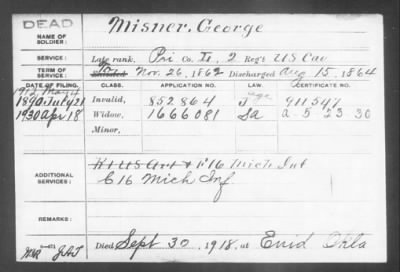 DEAD
NAME OF SOLDIER: Misner, George
SERVICE: Late rank, Pri Co. I, 2 Reg't US Cav
TERM OF SERVICE: Enlisted Nov. 26, 1862 Discharged Aug 15, 1864
DATE OF FILING. CLASS. APPLICATION NO. LAW. CERTIFICATE NO.
1912 May 4
1890 July 21 Invalid, 852864 J Age 911547
1930 Apr 18 Widow, 1666081 Sa a-5 23 30
Minor,
ADDITIONAL SERVICES: K1 US Art & F16 Mich Inf
C 16 Mich Inf.
REMARKS:
Died Sept 30, 1918, at Enid Okla